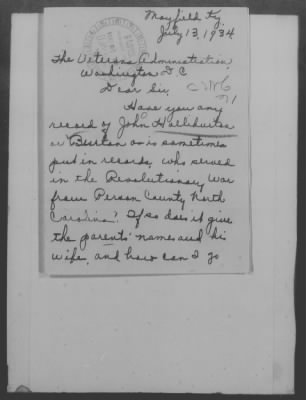 Mayfield Ky.
July 13, 1934
The Veterans Administration,
Washington D.C
Dear Sir,
Have you any
record of John Halliburton
or Burton as is sometimes
put in records, who served
in the Revolutionary War
from Person County North
Carolina? If so does it give
the parents' names and his
wife, and how can I go